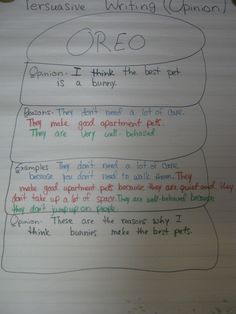 Persuasive Writing (Opinion)
OREO
Opinion- I think the best pet
is a bunny.
Reasons- They don't need a lot of care.
They make good apartment pets.
They are very well-behaved
Examples They don't need a lot of care
because you don't need to walk them. They
make good apartment pets because they are quiet and they
don't take up a lot of space. They are well-behaved because
they don't jump up on people.
Opinion- These are the reasons why I
think bunnies make the best pets.